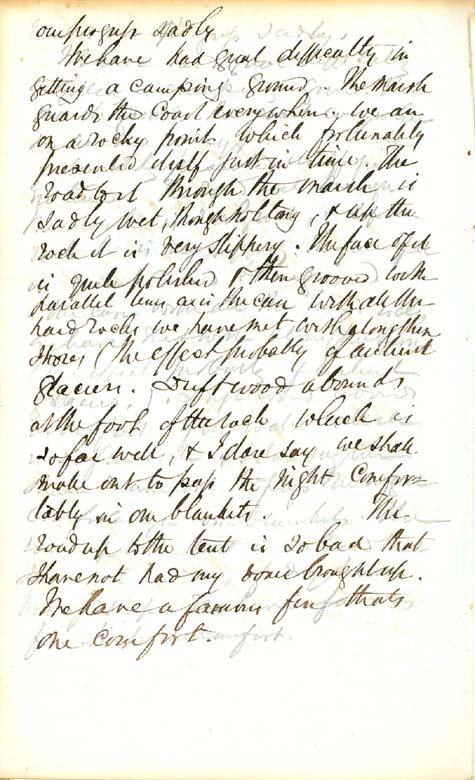 our progress sadly
We have had great difficulty in
getting a camping ground. The marsh
guards the coast everywhere. We are
on a rocky point which fortunately
presented itself just in time. The
road to it through the marsh is
sadly wet, though not long, & up the
rock it is very slippery. The face of it
is quite polished & then grooved with
parallel lines as is the case with all the
hard rocks we have met with along these
shores (the effect probably of ancient
glaciers. Driftwood abounds
at the foot of the rock which is
so far well, & I dare say we shall
make out to pass the night comfor=
tably in our blankets. The
road up to the tent is so bad that
I have not had my boxes brought up.
We have a famous fire that's
one comfort.